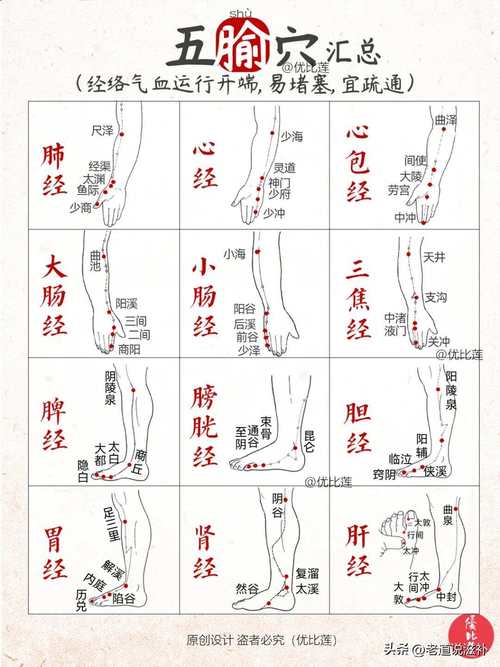 shù
五腧穴汇总
@优比莲
(经络气血运行开端,易堵塞,宜疏通)
肺经
尺泽
经渠
太渊
鱼际
少商
心经
少海
灵道
神门
少府
少冲
心包经
曲泽
间使
大陵
劳宫
中冲
大肠经
曲池
阳溪
三间
二间
商阳
小肠经
小海
阳谷
后溪
前谷
少泽
三焦经
天井
支沟
中渚
液门
关冲
@优比莲
脾经
阴陵泉
商丘
太白
大都
隐白
膀胱经
束骨
通谷
至阴
昆仑
@优比莲
胆经
阳陵泉
阳辅
临泣
侠溪
窍阴
胃经
足三里
解溪
内庭
陷谷
历兑
肾经
阴谷
复溜
太溪
然谷
肝经
大敦
行间
太冲
曲泉
太冲
行间
大敦
中封
原创设计 盗者必究（优比莲）
优比莲
头条@老道说滋补